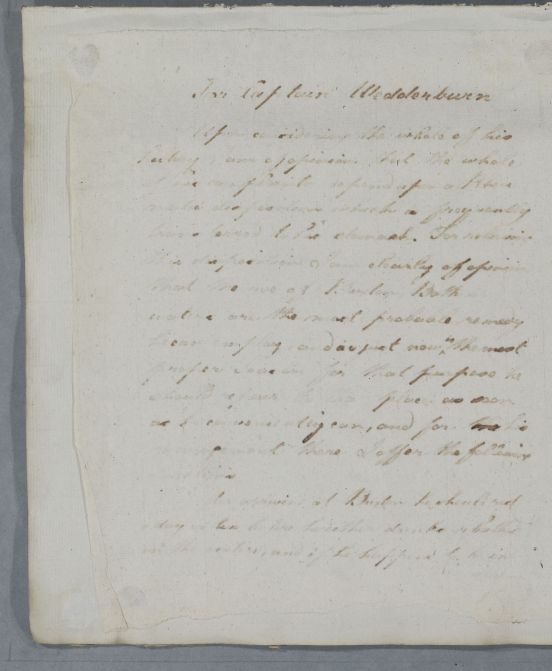 For Captain Wedderburn
Upon considering the whole of his
feelings I am of opinion that the whole
of his complaints depend upon a Rheu
matic disposition which is frequently
transferred to the stomach. For relieving
this disposition I am clearly of opinion
that the use of Buxton Bath
waters are the most probable remedy
he can employ, and as just now the most
proper season for that purpose he
should repair to that place as soon
as he conveniently can, and for his
management there I offer the following
directions
On arriving at Buxton he should rest
a day or two before he either drinks or bathes
in the waters, and if he happens to be in